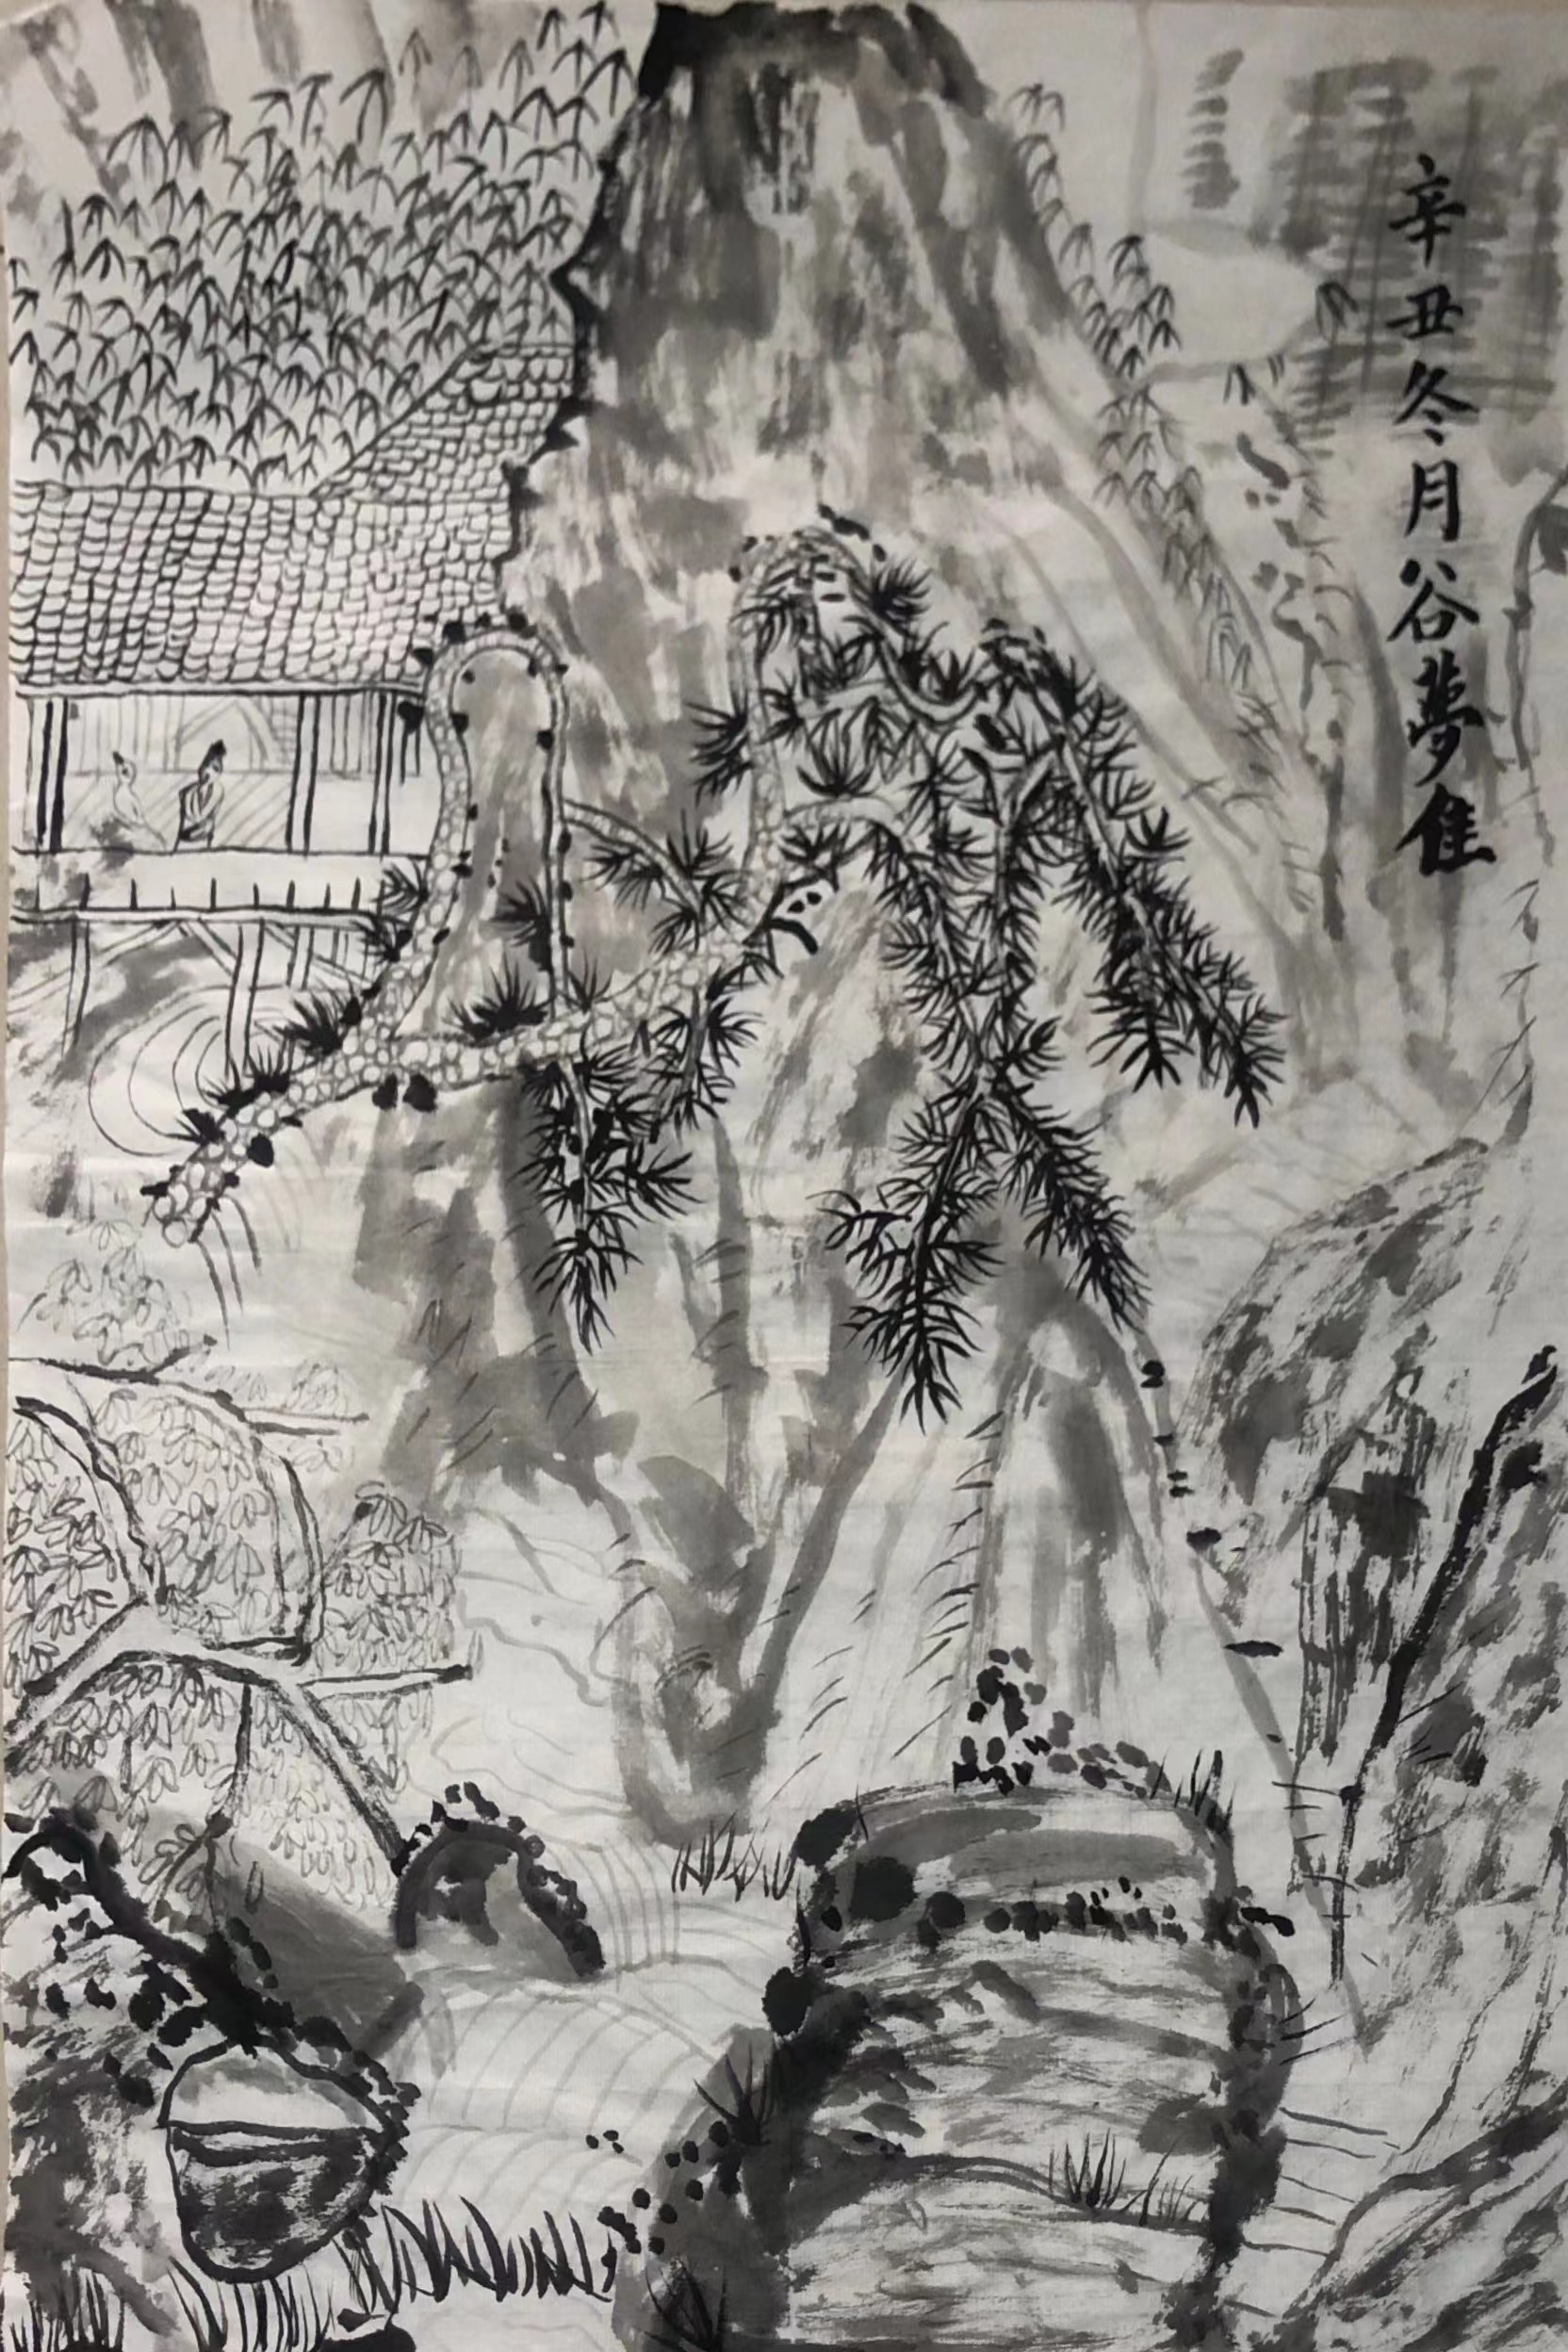 辛丑冬月谷夢隹